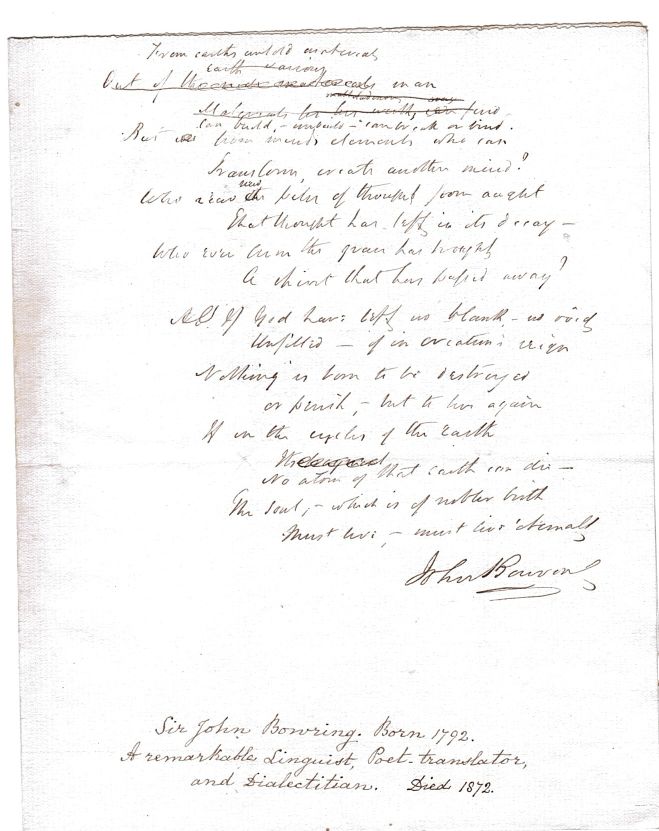 From earths untold materials
earth various
Out of the materials man
Materials for his worth, can find.
can build, – unbuild – can break or bind.
But from minds elements who can
Transform, create another mind?
Who rear new the piles of thought from aught
That thought has left in its decay –
Who ever from the grave has brought
A spirit that has passed away?
If God have left no blank – no void
Unfilled – if in creation's reign
Nothing is born to be destroyed
or perish, – but to live again
If in the cycles of the Earth
No atom of that earth can die –
The Soul, – which is of nobler birth
Must live, – must live eternally
John Bowring
Sir John Bowring. Born 1792.
A remarkable Linguist, Poet-translator,
and Dialectitian. Died 1872.